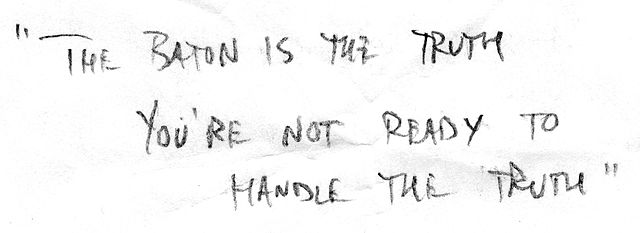 "THE BATON IS THE TRUTH
YOU'RE NOT READY TO
HANDLE THE TRUTH"